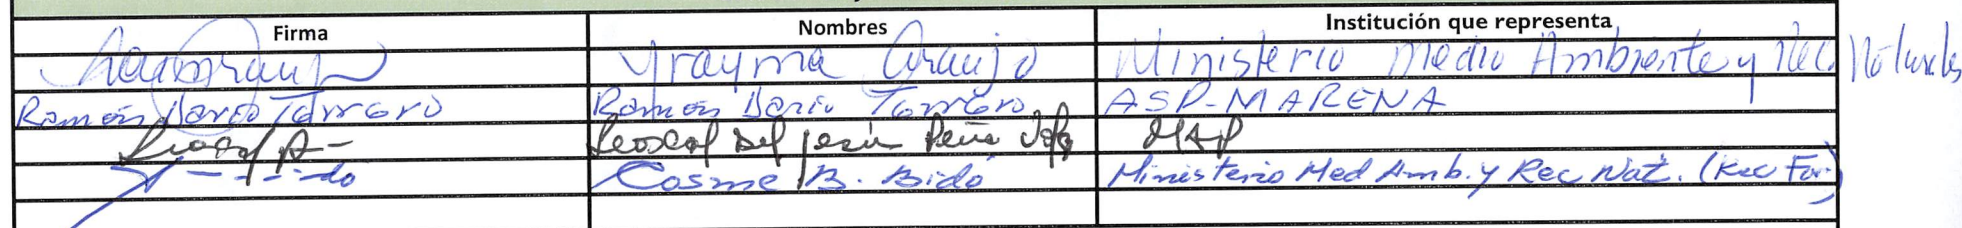 Firma Nombres Institución que representa
Yrayma Araujo Ministerio Medio Ambiente y Rec. Naturales
Ramón Dario Terrero Ramón Dario Terrero ASP-MARENA
Del Jesús Peña MAP
Cosme B. Bidó Ministerio Med Amb. y Rec Nat. (Rec For.)